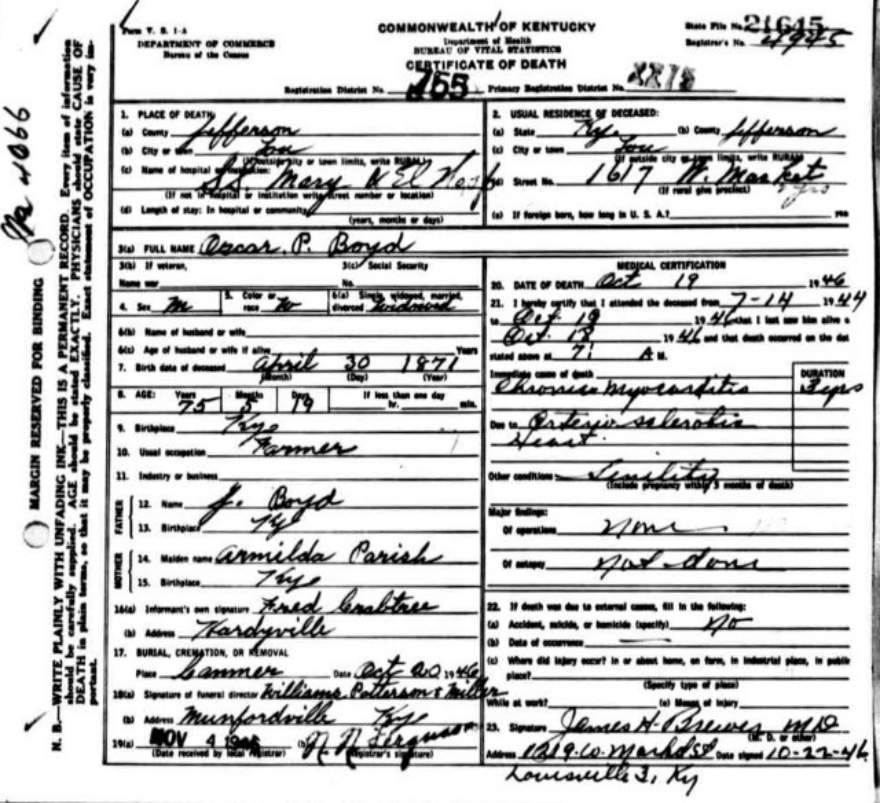 Form V. S. 1-A
DEPARTMENT OF COMMERCE
Bureau of the Census
COMMONWEALTH OF KENTUCKY
Department of Health
BUREAU OF VITAL STATISTICS
CERTIFICATE OF DEATH
State File No. 21645
Registrar's No. 4945
Registration District No. 755 Primary Registration District No.
MARGIN RESERVED FOR BINDING
N. B.—WRITE PLAINLY WITH UNFADING INK—THIS IS A PERMANENT RECORD. Every item of information
should be carefully supplied. AGE should be stated EXACTLY. PHYSICIANS should state CAUSE OF
DEATH in plain terms, so that it may be properly classified. Exact statement of OCCUPATION is very im-
portant.
1. PLACE OF DEATH
(a) County Jefferson
(b) City or town Lou
(If outside city or town limits, write RURAL)
(c) Name of hospital or institution: SS. Mary & El Hosp
(If not in hospital or institution write street number or location)
(d) Length of stay: In hospital or community
(years, months or days)
2. USUAL RESIDENCE OF DECEASED:
(a) State Ky (b) County Jefferson
(c) City or town Lou
(If outside city or town limits, write RURAL)
(d) Street No. 1617 W. Market
(If rural give precinct)
(e) If foreign born, how long in U. S. A.? yrs
3(a) FULL NAME Oscar. P. Boyd
3(b) If veteran,
Name war
3(c) Social Security
No.
4. Sex M 5. Color or race W 6(a) Single, widowed, married, divorced Widowed
6(b) Name of husband or wife
6(c) Age of husband or wife if alive Years
7. Birth date of deceased April 30 1871
(Month) (Day) (Year)
8. AGE: Years 75 Months 5 Days 19 If less than one day hr. min.
9. Birthplace Ky
10. Usual occupation Farmer
11. Industry or business
FATHER
12. Name J. Boyd
13. Birthplace Ky
MOTHER
14. Maiden name Armilda Parish
15. Birthplace Ky
16(a) Informant's own signature Fred Crabtree
(b) Address Hardyville
17. BURIAL, CREMATION, OR REMOVAL
Place Canmer Date Oct 20 1946
18(a) Signature of funeral director Williams Patterson & Miller
(b) Address Munfordville Ky
19(a) NOV 4 1946 (b) N N Ferguson
(Date received by local registrar) (Registrar's signature)
MEDICAL CERTIFICATION
20. DATE OF DEATH Oct 19 1946
21. I hereby certify that I attended the deceased from 7-14 1944
to Oct. 19 1946 that I last saw him alive o
Oct. 18 1946 and that death occurred on the dat
stated above at 7: A M.
Immediate cause of death DURATION
Chronic Myocarditis 3 yrs
Due to Arterio sclerosis
Heart.
Other conditions Senility
(Include pregnancy within 3 months of death)
Major findings:
Of operations None
Of autopsy Not done
22. If death was due to external causes, fill in the following:
(a) Accident, suicide, or homicide (specify) No
(b) Date of occurrence
(c) Where did injury occur? in or about home, on farm, in industrial place, in public
place?
(Specify type of place)
While at work? (e) Means of injury
23. Signature James H. Brewer M.D
(M. D. or other)
Address 1219 W. Market St Date signed 10-22-46
Louisville 3, Ky